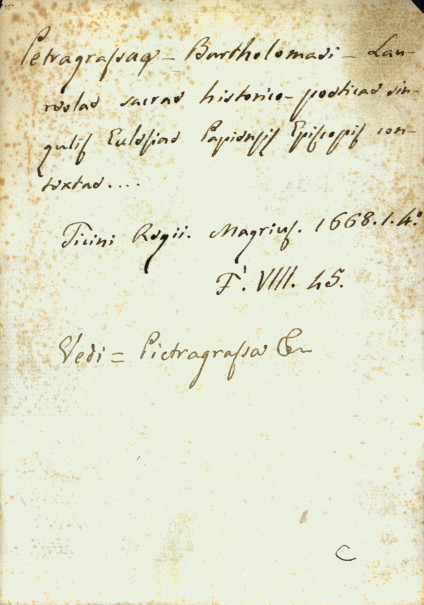 Petragrassae - Bartholomaei - Lau-
reolae sacrae historico-poeticae sin-
gulis Eclesiae Papiensis Episcopis con-
textae....
Ticini Regii. Magrius. 1668.1.4.º
F. VIII. 45.
Vedi = Pietragrassa
C